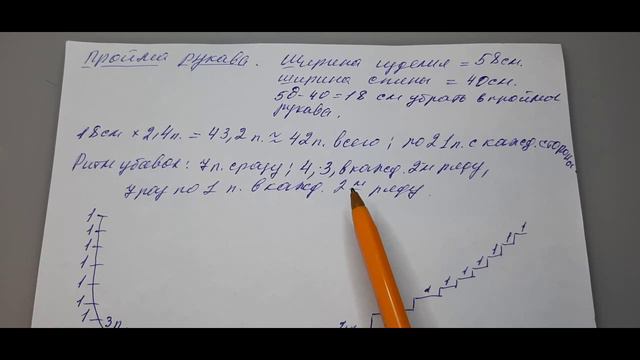 Пройма рукава. Ширина изделия = 58см.
ширина спины = 40см.
58-40=18 см убрать в пройме
рукава.
18см × 2,4п. = 43,2 п. ≈ 42п. всего; по 21п. с кажд. стороны.
Ритм убавок: 7п. сразу; 4, 3, в кажд. 2м ряду,
7 раз по 1 п. в кажд. 2м ряду.
1
1
1
1
1
1
1
3п.
1
1
1
1
1
1